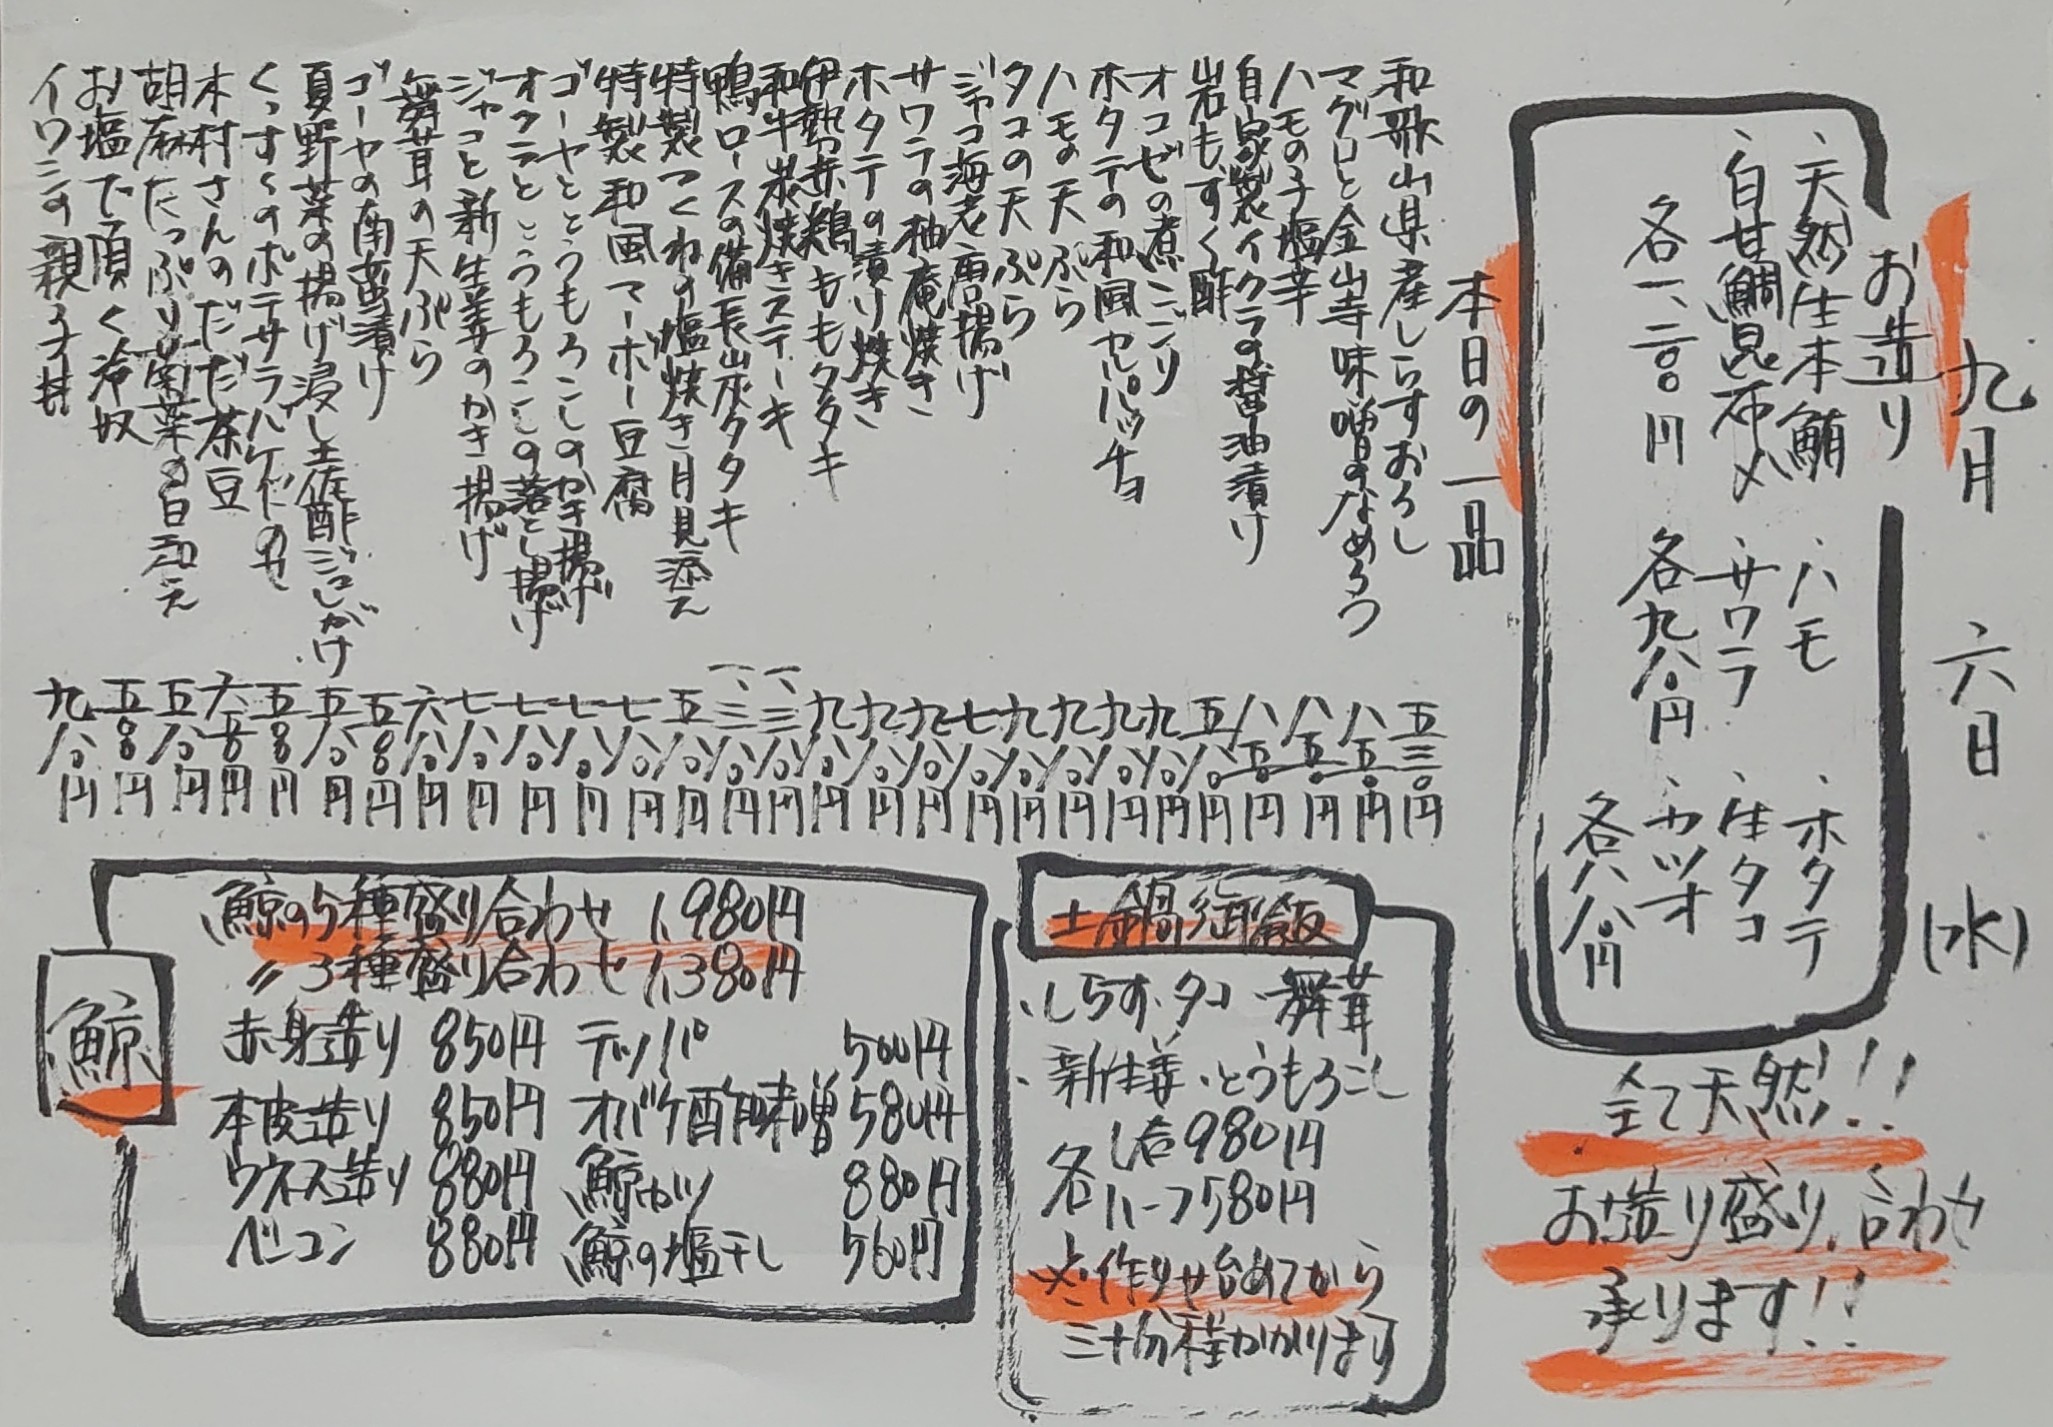 九月 六日 (水)
お造り
、天然生本鮪 、ハモ 、ホタテ
、白甘鯛昆布〆 、サワラ 、生タコ
各一、二〇〇円 各九八〇円 、カツオ
各八八〇円
全て天然!!
お造り盛り合わせ
承ります!!
本日の一品
和歌山県産しらすおろし 五三〇円
マグロと金山寺味噌のなめろう 八五〇円
ハモの子塩辛 八五〇円
自家製イクラの醤油漬け 八五〇円
岩もずく酢 五八〇円
オコゼの煮こごり 九八〇円
ホタテの和風カルパッチョ 九八〇円
ハモの天ぷら 九八〇円
タコの天ぷら 九八〇円
ジャコ海老唐揚げ 七八〇円
サワラの柚庵焼き 九八〇円
ホタテの漬け焼き 九八〇円
伊勢赤鶏ももタタキ 九八〇円
和牛炭焼きステーキ 一、三八〇円
鴨ロースの備長炭タタキ 一、三八〇円
特製つくねの塩焼き月見添え 五八〇円
特製和風マーボー豆腐 七八〇円
ゴーヤととうもろこしのかき揚げ 七八〇円
オクラととうもろこしの落とし揚げ 七八〇円
ジャコと新生姜のかき揚げ 七八〇円
舞茸の天ぷら 六八〇円
ゴーヤの南蛮漬け 五〇〇円
夏野菜の揚げ浸し土佐酢ジュレがけ 五八〇円
くっすくのポテサラバゲットのせ 五〇〇円
木村さんのだだ茶豆 六五〇円
胡麻たっぷり菊菜の白和え 五八〇円
お塩で頂く冷奴 五〇〇円
イワシの親子丼 九八〇円
土鍋御飯
、しらす、タコ、舞茸
、新生姜、とうもろこし
各 1合980円
各 ハーフ580円
※作り始めてから
三十分程かかります
鯨
鯨の5種盛り合わせ 1,980円
〃3種盛り合わせ 1,380円
赤身造り 850円 テッパ 500円
本皮造り 850円 オバケ酢味噌 580円
ウネス造り 880円 鯨カツ 880円
ベーコン 880円 鯨の塩干し 560円